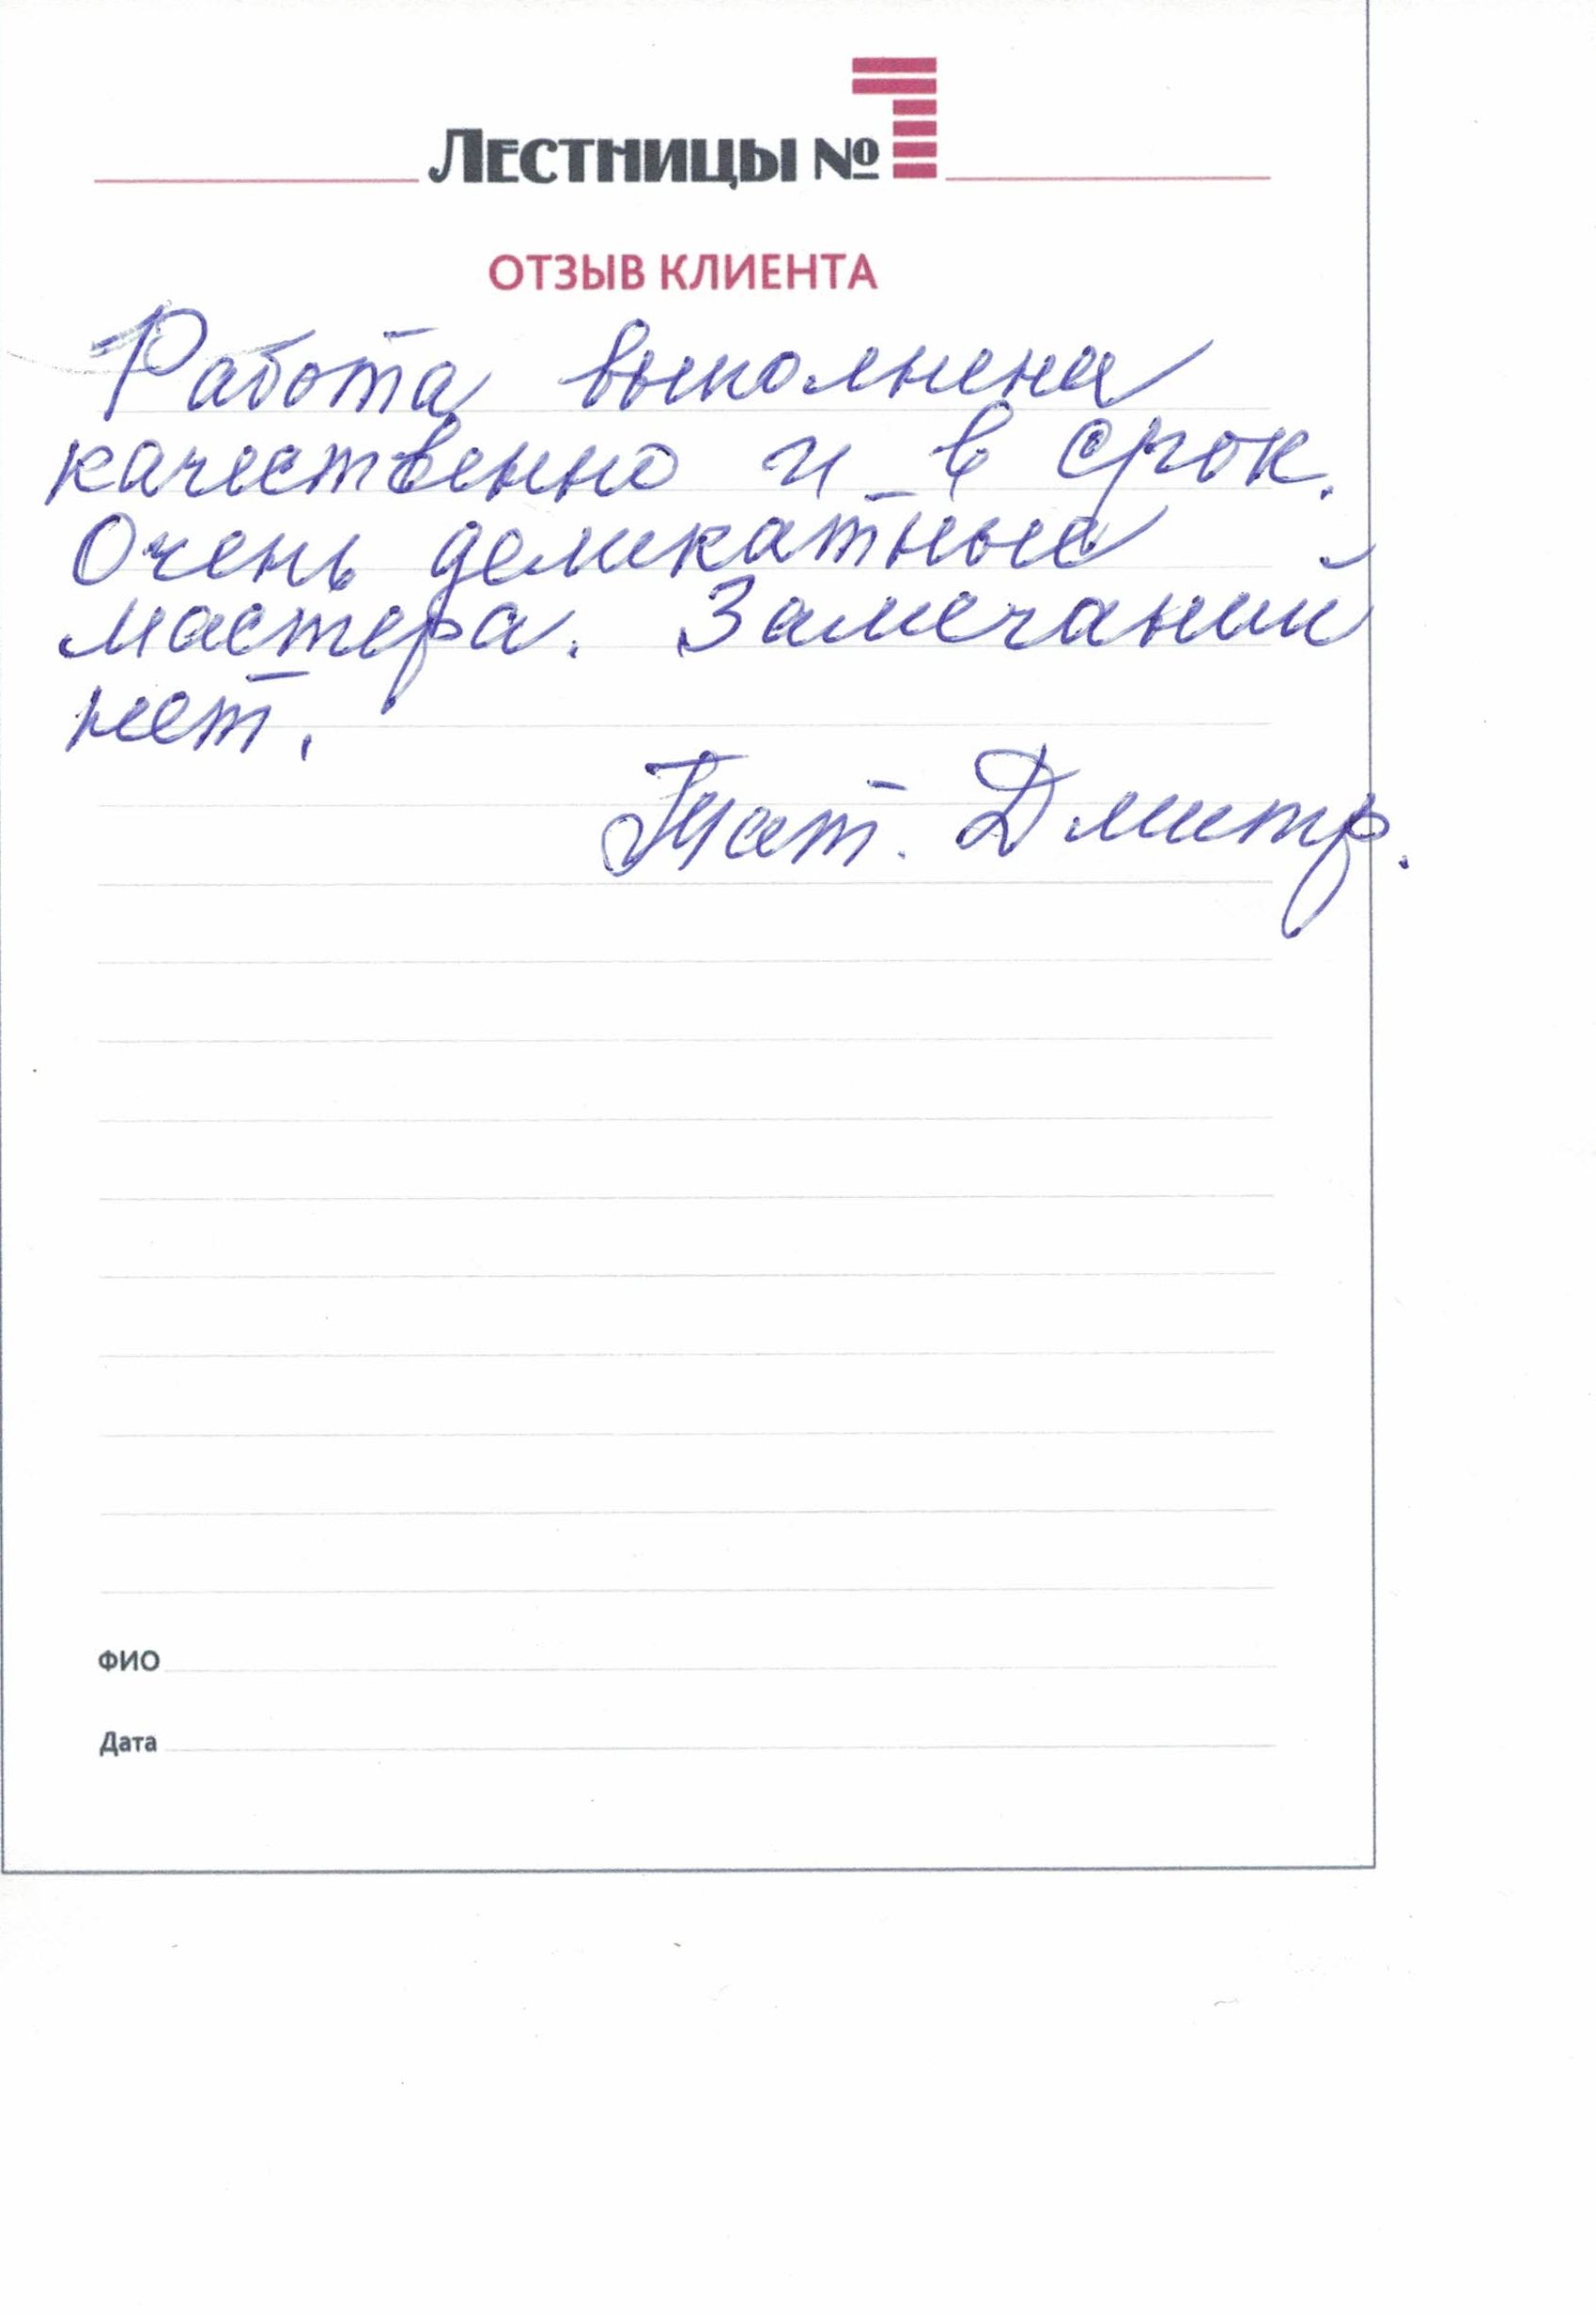 Лестницы №1
ОТЗЫВ КЛИЕНТА
Работа выполнена
качественно и в срок.
Очень деликатные
мастера. Замечаний
нет.
Тат. Дмитр.
ФИО
Дата